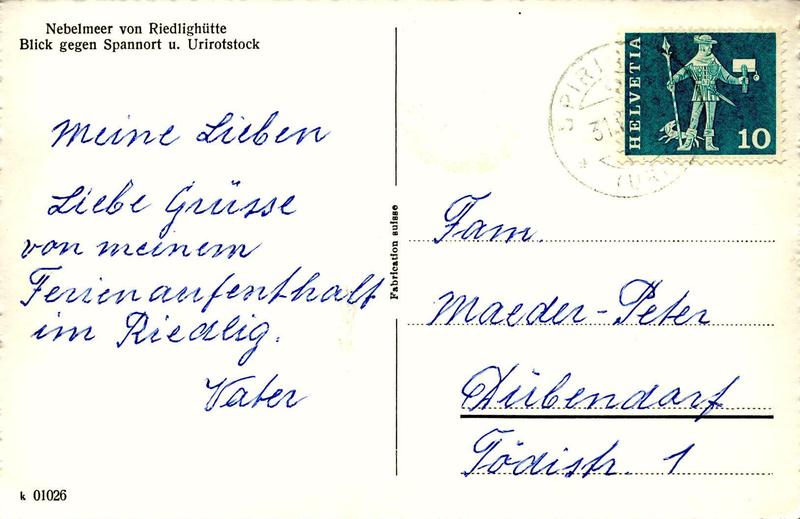 Nebelmeer von Riedlighütte
Blick gegen Spannort u. Urirotstock
Meine Lieben
Liebe Grüsse
von meinem
Ferienaufenthalt
im Riedlig.
Vater
k 01026
Fabrication suisse
HELVETIA
10
SPIRI
31.
(URI)
Fam.
Maeder-Peter
Dübendorf
Tödistr. 1